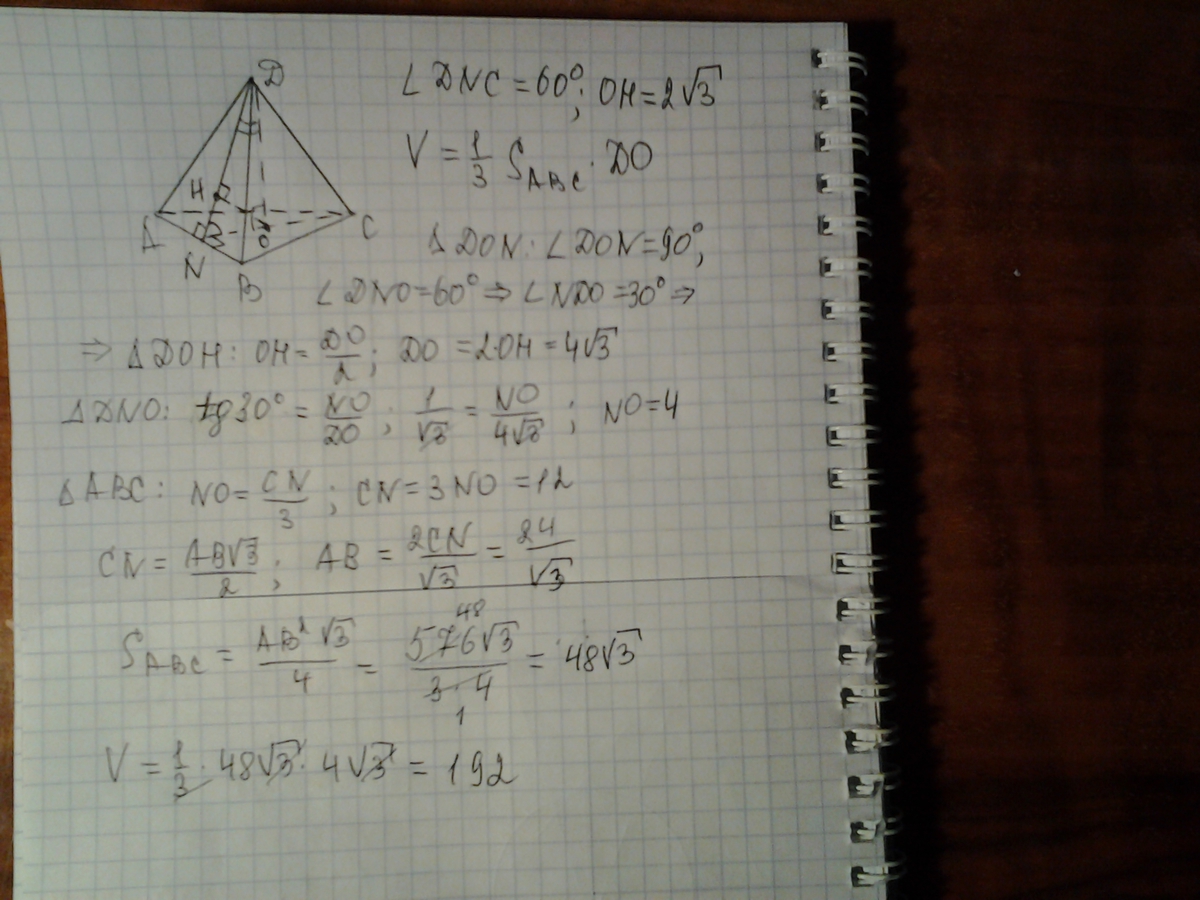 D
∠DNC = 60°; OH = 2√3
V = 1/3 S_ABC · DO
H
A
O
C
N
B
ΔDON: ∠DON = 90°,
∠DNO = 60° ⇒ ∠NDO = 30° ⇒
⇒ ΔDOH: OH = DO/2; DO = 2·OH = 4√3
ΔDNO: tg30° = NO/DO; 1/√3 = NO/4√3; NO = 4
ΔABC: NO = CN/3; CN = 3NO = 12
CN = AB√3/2; AB = 2CN/√3 = 24/√3
48
S_ABC = AB²√3/4 = 576√3/3·4 = 48√3
1
V = 1/3 · 48√3 · 4√3 = 192